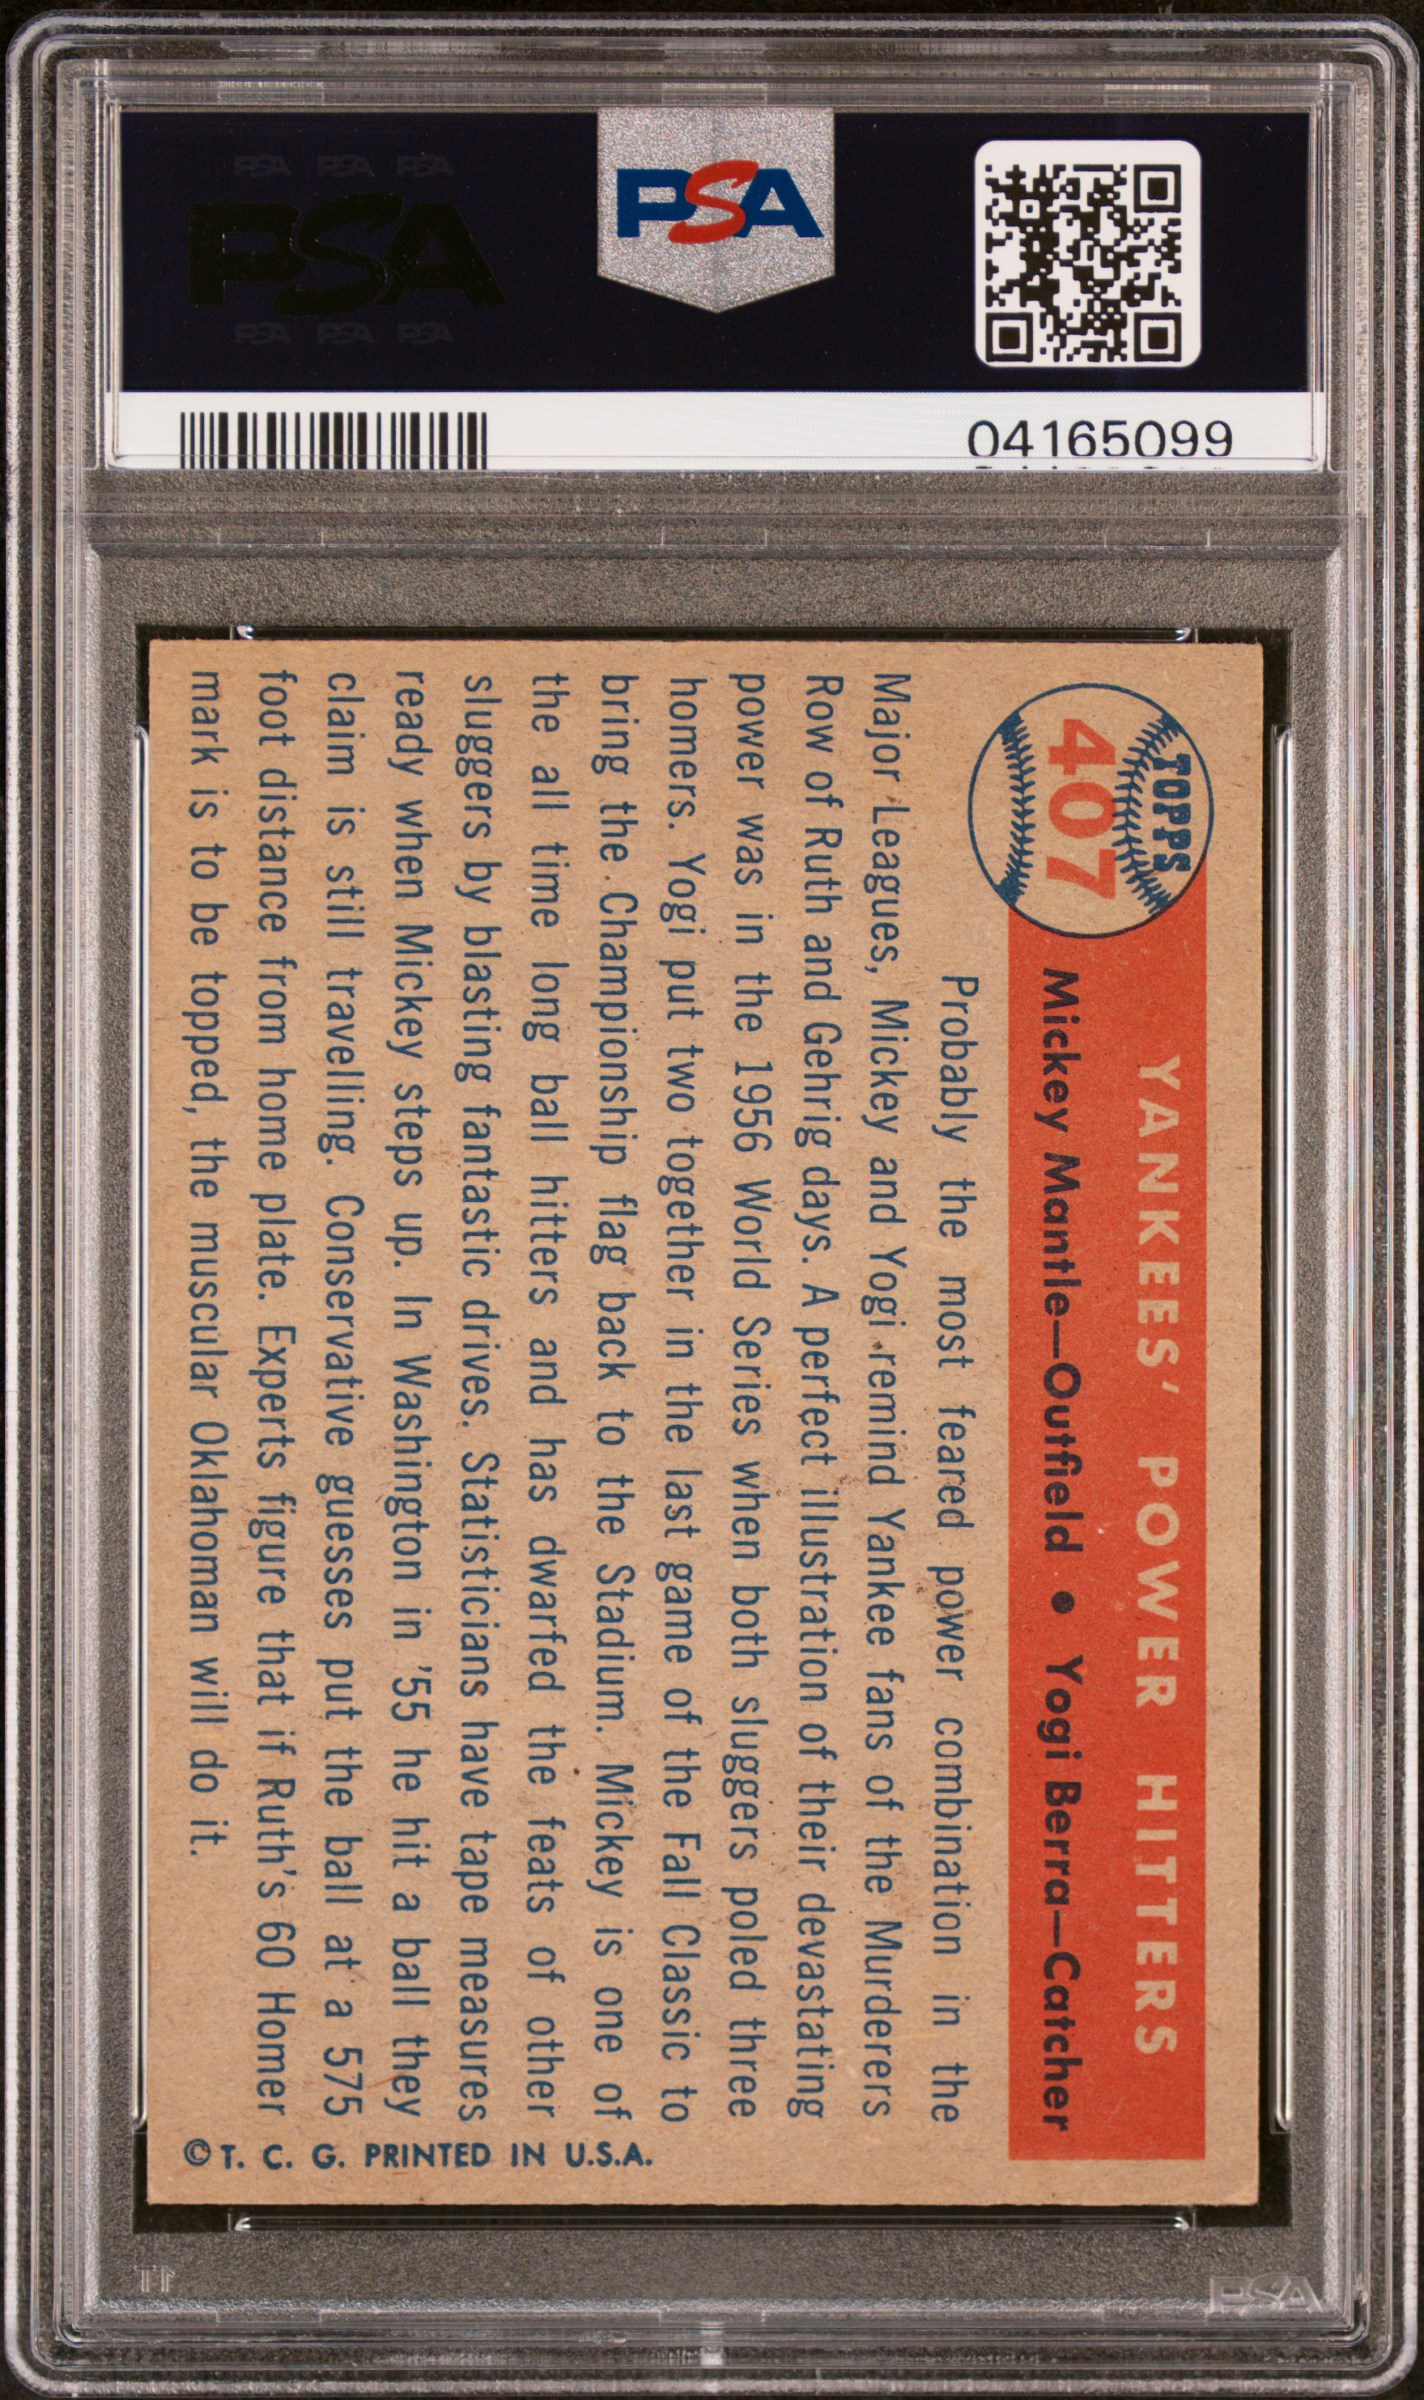 PSA PSA PSA
PSA
PSA PSA PSA
PSA
04165099
TOPPS
407
YANKEES' POWER HITTERS
Mickey Mantle—Outfield • Yogi Berra—Catcher
Probably the most feared power combination in the
Major Leagues, Mickey and Yogi remind Yankee fans of the Murderers
Row of Ruth and Gehrig days. A perfect illustration of their devastating
power was in the 1956 World Series when both sluggers poled three
homers. Yogi put two together in the last game of the Fall Classic to
bring the Championship flag back to the Stadium. Mickey is one of
the all time long ball hitters and has dwarfed the feats of other
sluggers by blasting fantastic drives. Statisticians have tape measures
ready when Mickey steps up. In Washington in '55 he hit a ball they
claim is still travelling. Conservative guesses put the ball at a 575
foot distance from home plate. Experts figure that if Ruth's 60 Homer
mark is to be topped, the muscular Oklahoman will do it.
© T. C. G. PRINTED IN U.S.A.
PSA